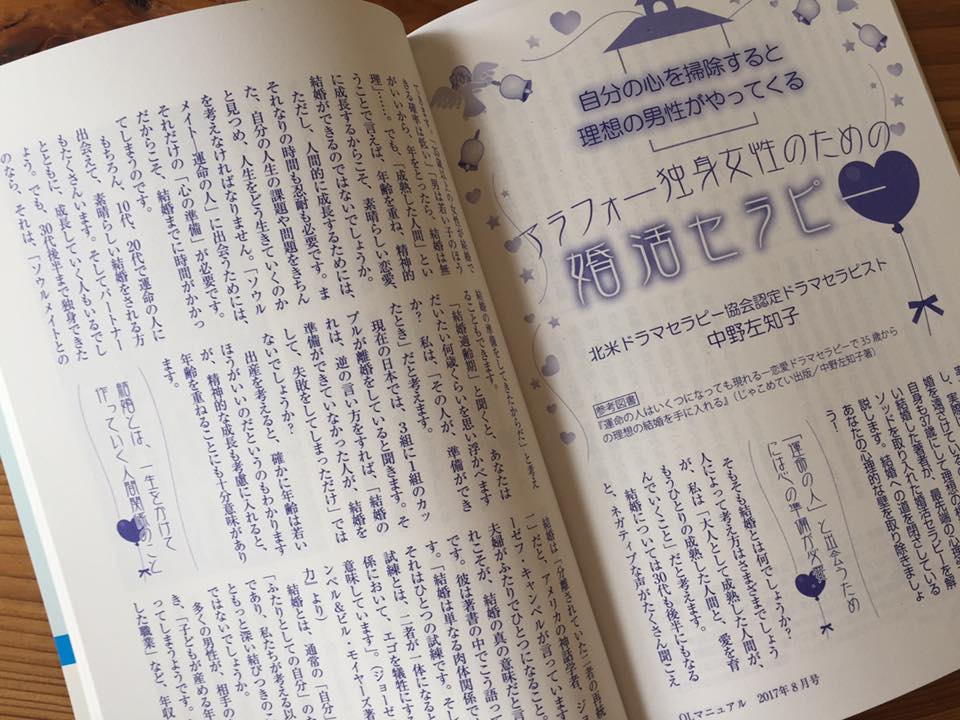 自分の心を掃除すると
理想の男性がやってくる
アラフォー独身女性のための
婚活セラピー
北米ドラマセラピー協会認定ドラマセラピスト
中野左知子
参考図書
『運命の人はいくつになっても現れる―恋愛ドラマセラピーで35歳から
の理想の結婚を手に入れる』(じゃこめてい出版/中野左知子著)
自身も37歳にして理想の
い結婚した著者が、最先端の心理
ソッドを取り入れた婚活セラピーを解
説します。結婚への道を閉ざしている
あなたの心理的な壁を取り除きましょ
う!
「運命の人」と出会うため
には心の準備が必要
そもそも結婚とは何でしょうか?
人によって考え方はさまざまでしょう
が、私は「大人として成熟した人間が、
もうひとりの成熟した人間と、愛を育
んでいくこと」だと考えます。
結婚については30代も後半にもなる
と、ネガティブな声がたくさん聞こえ
OLマニュアル 2017年8月号
てきます。「35歳以上の女性が結婚で
きる確率は低い」「男は若い子のほう
がいいから、年をとったら、結婚は無
理」……。でも、「成熟した人間」とい
うことで言えば、年齢を重ね、精神的
に成長するからこそ、素晴らしい恋愛、
結婚ができるのではないでしょうか。
ただし、人間的に成長するためには、
それなりの時間も忍耐も必要です。ま
た、自分の人生の課題や問題をきちん
と見つめ、人生をどう生きていくのか
を考えなければなりません。「ソウル
メイト=運命の人」に出会うためには、
それだけの「心の準備」が必要です。
だからこそ、結婚までに時間がかかっ
てしまうのです。
もちろん、10代、20代で運命の人に
出会えて、素晴らしい結婚をされる方
もたくさんいます。そしてパートナー
とともに、成長していく人もいるでし
ょう。でも、30代後半まで独身できた
のなら、それは、「ソウルメイトとの
結婚の準備をしてきたからだ」と考え
ることもできます。
「結婚適齢期」と聞くと、あなたは
だいたい何歳ぐらいを思い浮かべます
か? 私は、「その人が、準備ができ
たとき」だと考えます。
現在の日本では、3組に1組のカッ
プルが離婚をしていると聞きます。そ
れは、逆の言い方をすれば、「結婚の
準備ができていなかった人が、結婚を
して、失敗をしてしまっただけ」では
ないでしょうか?
出産を考えると、確かに年齢は若い
ほうがいいのだというのもわかります
が、精神的な成長も考慮に入れると、
年齢を重ねることにも十分意味があり
ます。
結婚とは、一生をかけて
作っていく人間関係のこと
結婚は「分離されていた二者の再統
一」だと、アメリカの神話学者、ジョ
ーゼフ・キャンベルが言っています。
夫婦がふたりでひとつになること。そ
れこそが、結婚の真の意味だと言
です。彼は著書の中でこう語って
す。「結婚は単なる肉体関係で
それはひとつの試練です。そし
試練とは、二者が一体になると
係において、エゴを犠牲にする
意味しています」。(ジョーゼ
ンベル&ビル・モイヤーズ著
力』より)
結婚とは、通常の「自分」
「ふたりとしての自分」の
であり、私たちが考える以
ともっと深い結びつきのこ
ではないでしょうか。
多くの男性が、相手の
き、「子どもが産める年
ってしまうようです。
した職業」など、年収